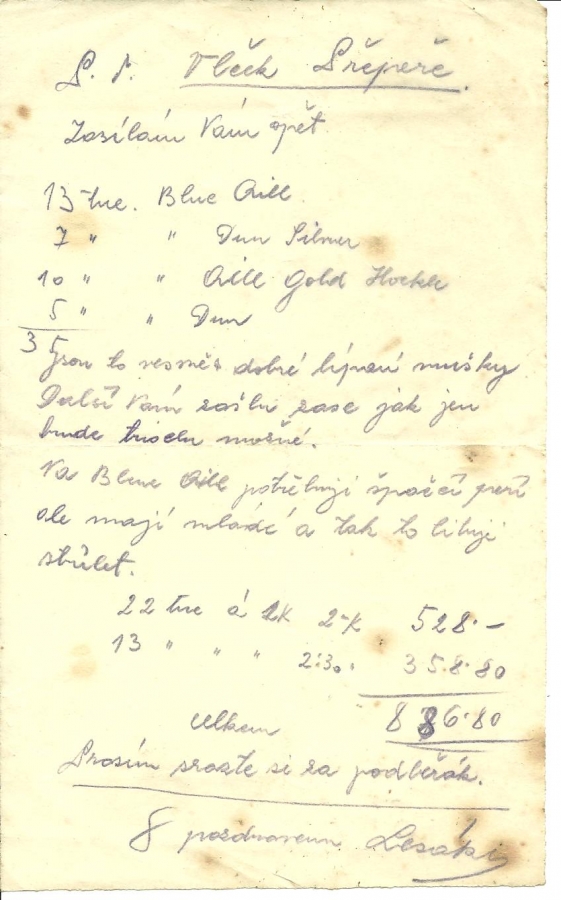 Vlček
Zasílám Vám opět
13 tuc. Blue Quill
7 " " Dun Silver
10 " " Quill Gold Hockle
5 " " Dun
35
Jsou to vesměs dobré lípaní mušky
Další Vám zašlu zase jak jen
bude trochu možné.
Na Blue Quill potřebuji špačí peří
ale mají mladé a tak to lituji
střílet.
22 tuc á 2-K 528.-
13 " " " 2:30. 358.80
celkem 886.80
Prosím srazte si za podběrák.
S pozdravem